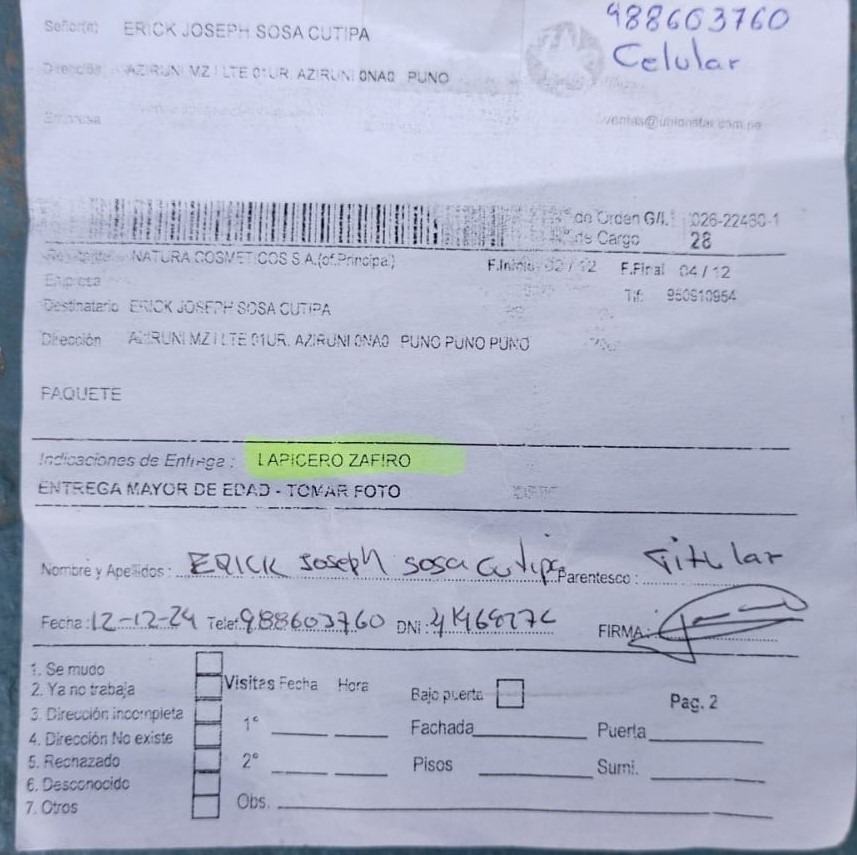 Señor(a) ERICK JOSEPH SOSA CUTIPA
988603760
Celular
Dirección AZIRUNI MZ I LTE 01UR. AZIRUNI 0NA0 PUNO
Empresa
ventas@unionstar.com.pe
de Orden G/I. 026-22480-1
de Cargo 28
NATURA COSMETICOS S.A.(of.Principal)
F.Inicio 02 / 12 F.Final 04 / 12
Empresa
Tlf: 950910954
Destinatario ERICK JOSEPH SOSA CUTIPA
Dirección AZIRUNI MZ I LTE 01UR. AZIRUNI 0NA0 PUNO PUNO PUNO
PAQUETE
Indicaciones de Entrega : LAPICERO ZAFIRO
ENTREGA MAYOR DE EDAD - TOMAR FOTO
Nombre y Apellidos : ERICK Joseph sosa cutipa Parentesco : Titular
Fecha : 12-12-24 Telef: 988603760 DNI : FIRMA:
1. Se mudo
2. Ya no trabaja
3. Dirección incompleta
4. Dirección No existe
5. Rechazado
6. Desconocido
7. Otros
Visitas Fecha Hora
1°
2°
Obs.
Bajo puerta
Pag. 2
Fachada Puerta
Pisos Sumi.